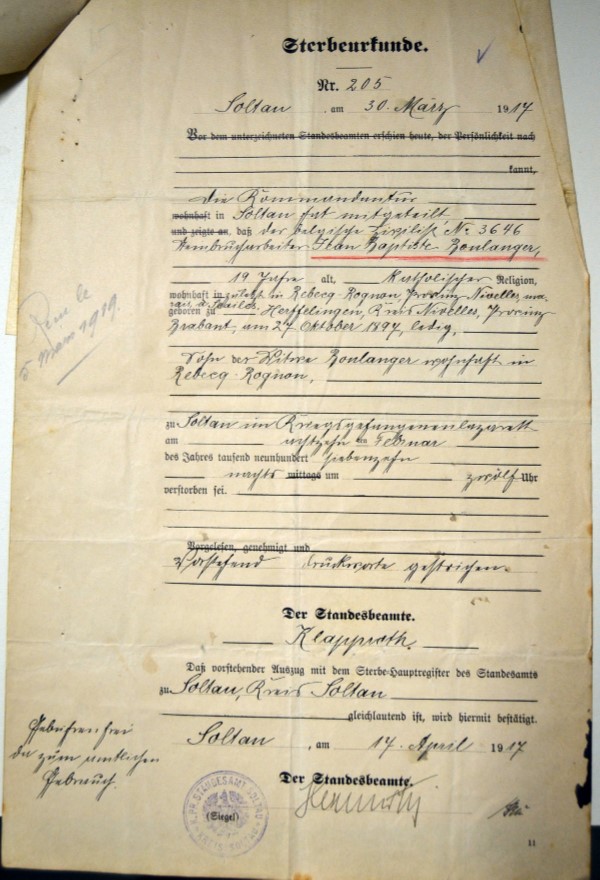 Sterbeurkunde.
Nr. 205
Soltau, am 30. März 1917
Vor dem unterzeichneten Standesbeamten erschien heute, der Persönlichkeit nach
kannt,
Die Kommandantur
wohnhaft in Soltau hat mitgeteilt,
und zeigte an, daß der belgische Zivilist No. 3646
Steinbrucharbeiter Jean Baptiste Boulanger,
19 Jahre alt, Katholischer Religion,
wohnhaft in zuletzt in Rebecq-Rognon, Provinz Nivelles
geboren zu Herffelingen, Kreis Nivelles, Provinz
Brabant, am 27 Oktober 1897, ledig,
Sohn der Witwe Boulanger wohnhaft in
Rebecq-Rognon,
zu Soltau im Kriegsgefangenenlazarett
am achtzehn ten Februar
des Jahres tausend neunhundert siebenzehn
nachts mittags um zwölf Uhr
verstorben sei.
Vorgelesen, genehmigt und
Vorstehend Druckworte gestrichen.
Der Standesbeamte.
Klapproth.
Daß vorstehender Auszug mit dem Sterbe-Hauptregister des Standesamts
zu Soltau, Kreis Soltau
gleichlautend ist, wird hiermit bestätigt.
Soltau, am 17. April 1917
Der Standesbeamte.
(Siegel)
K. PR. STANDESAMT SOLTAU
KREIS SOLTAU
Gebührenfrei
da zum amtlichen
Gebrauch.
5 Mars 1919.
11